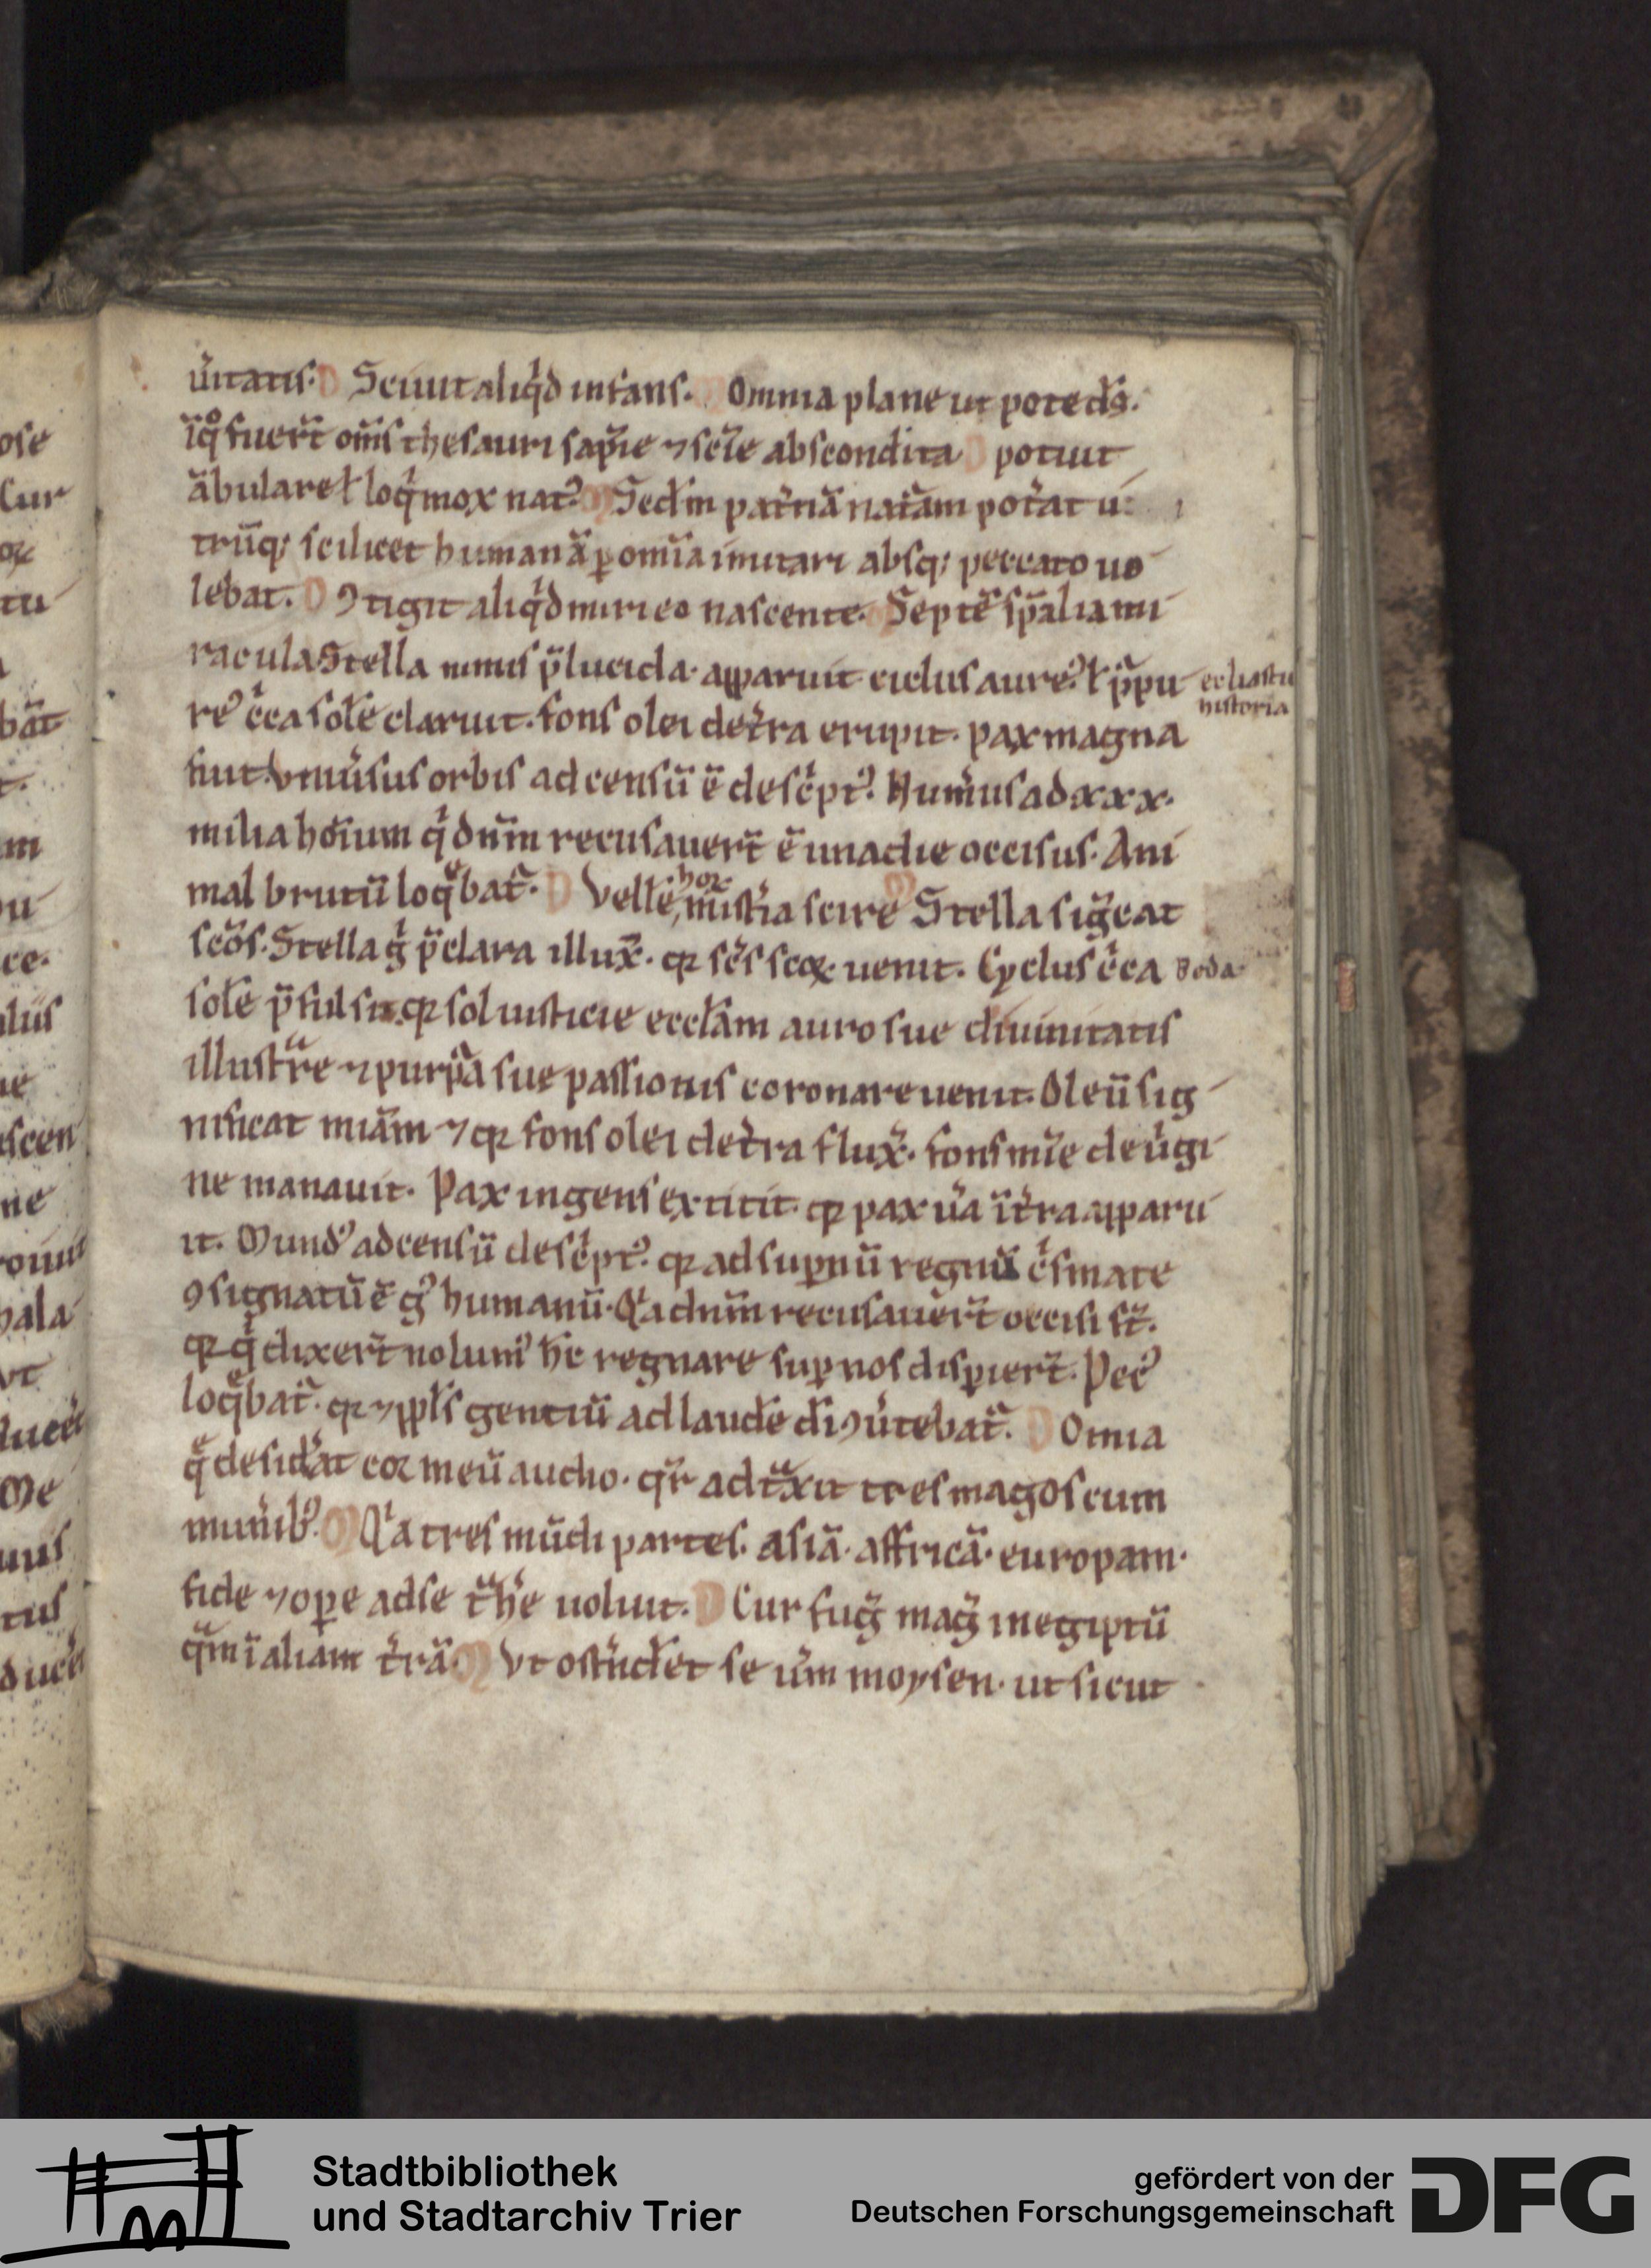 ose
Cur
tu
bat
am
pu
ce.
lus
ue
scen
ne
ronut
hala
vt
lucei
Me
uus
tus
ducei
ůitatis. D Sciuit aliqͥd infans. M Omnia plane ut pote ds̄.
ı̄ qͦ fuer̄t om̄s thesauri sapīe ⁊ scīe absconditi D potuit
ābulare ł loqͥ mox nat᾽ M Sedm patnā naturam potat u
trūq; scilicet humanā ꝑ om̄ia imitari absq; peccato uo
lebat. D ꝯtigit aliqͥd miri eo nascente. M Septē sp̄alia mi
racula Stella nimis p̄lucida apparuit ciclus aure᾽ ł p̄pu
re᾽ cͥca solē claruit. fons olei de tr̄a erupit. pax magna
fuit. vniūsus orbis ad censū ē descͥpt᾽. Numͥus ad xxx.
milia hōium qͥ dn̄m recusauer̄t ē una die occisus. Ani
mal brutū loqͤbat᷑. D Vellē hoꝝ mistīa scire M Stella sig̃cat
scōs. Stella gͥ p̄clara illux̄. qꝛ scs̄ scoꝝ uenit. Cyclus cͥca
solē p̄fulsit qꝛ sol iusticie eccl̄am auro sue diuinitatis
illustrͣre ⁊ purpͣa sue passionis coronare uenit. Oleū sig
nificat miām ⁊ qꝛ fons olei de tr̄a flux̄. fons mīe de ůgi
ne manauit. Pax ingens extitit qꝛ pax ůa ı̄ tr̄a apparu
it. Mund᾽ ad censū descͥpt᾽. qꝛ ad supͬnū regnū cͥsmate
ꝯsignatū ē gͦ humanū. Qͥa dn̄m recusauer̄t occisi st̄.
qꝛ qͥ dixer̄t nolum᾽ hc̄ regnare suꝑ nos disꝑier̄t. Pec᾽
loqͤbat᷑. qꝛ ⁊ ppl̄s gentiū ad laudē di ꝯůtebat᷑. D Omia
qͤ desidat cor meū audio. qr̄ adtͣxit tres magos cum
munib᾽. M Qͥa tres mūdi partes. asiā. affricā. europam.
fide ⁊ oꝑe ad se tͣhe uoluit. D Cur fug̃ mag̃ in egiptū
qͣm ı̄ aliam tr̄ā M Vt ostn̄det se ūm moysen. ut sicut
eccliastic
historia
Beda
Stadtbibliothek
und Stadtarchiv Trier
gefördert von der
Deutschen Forschungsgemeinschaft
DFG